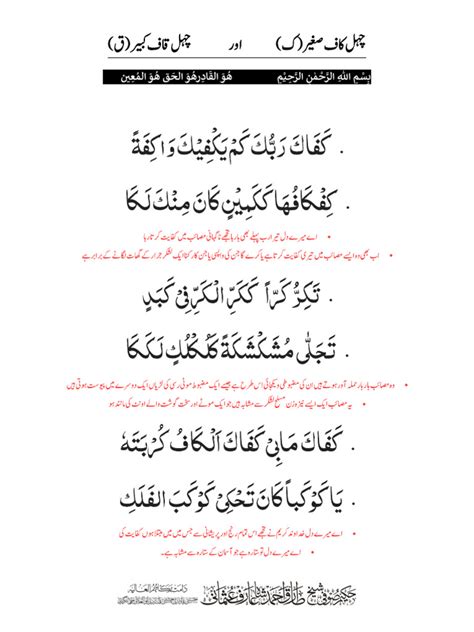 چہل کاف صغیر (ک) اور چہل قاف کبیر (ق)
بِسْمِ اللّٰهِ الرَّحْمٰنِ الرَّحِيْمِ هُوَ القَادِر هُوَ الحَق هُوَ المُعِين
. كَفَاكَ رَبُّكَ كَمْ يَكْفِيْكَ وَاكِفَةً
. كِفْكَافُهَا كَكَمِيْنٍ كَانَ مِنْكَ لَكَا
• اے میرے دل تیرا رب پہلے بھی بارہا تجھے ناگہانی مصائب میں کفایت کرتا رہا
• اب بھی وہ ایسے مصائب میں تیری کفایت کرتا ہے یا کرے گا جن کی واپسی یا جن کا رکنا ایک لشکر جرار کے گھات لگانے کے برابر ہے
. تَكِرُّ كَرّاً كَكَرِّ الْكَرِّ فِيْ كَبَدٍ
. تَجَلّٰى مُشَكْشَكَةً كَلُكْلُكٍ لَكَكَا
• وہ مصائب بار بار حملہ آور ہوتے ہیں ان کی مضبوطی و یکجائی اس طرح ہے جیسے ایک مضبوط موٹی رسی کی لڑیاں ایک دوسرے میں پیوست ہوتی ہیں
• یہ مصائب ایک ایسے نیزہ زن مسلح لشکر سے مشابہ ہیں جو ایک موٹے اور سخت گوشت والے اونٹ کی مانند ہو
. كَفَاكَ مَابِيْ كَفَاكَ الْكَافُ كُرْبَتَهٗ
. يَا كَوْكَباً كَانَ تَحْكِيْ كَوْكَبَ الفَلَكِ
• اے میرے دل خداوند کریم نے تجھے اس تمام رنج اور پریشانی سے جس میں میں مبتلا ہوں کفایت کی
• اے میرے دل تو ستارہ ہے جو آسمان کے ستارہ سے مشابہ ہے۔